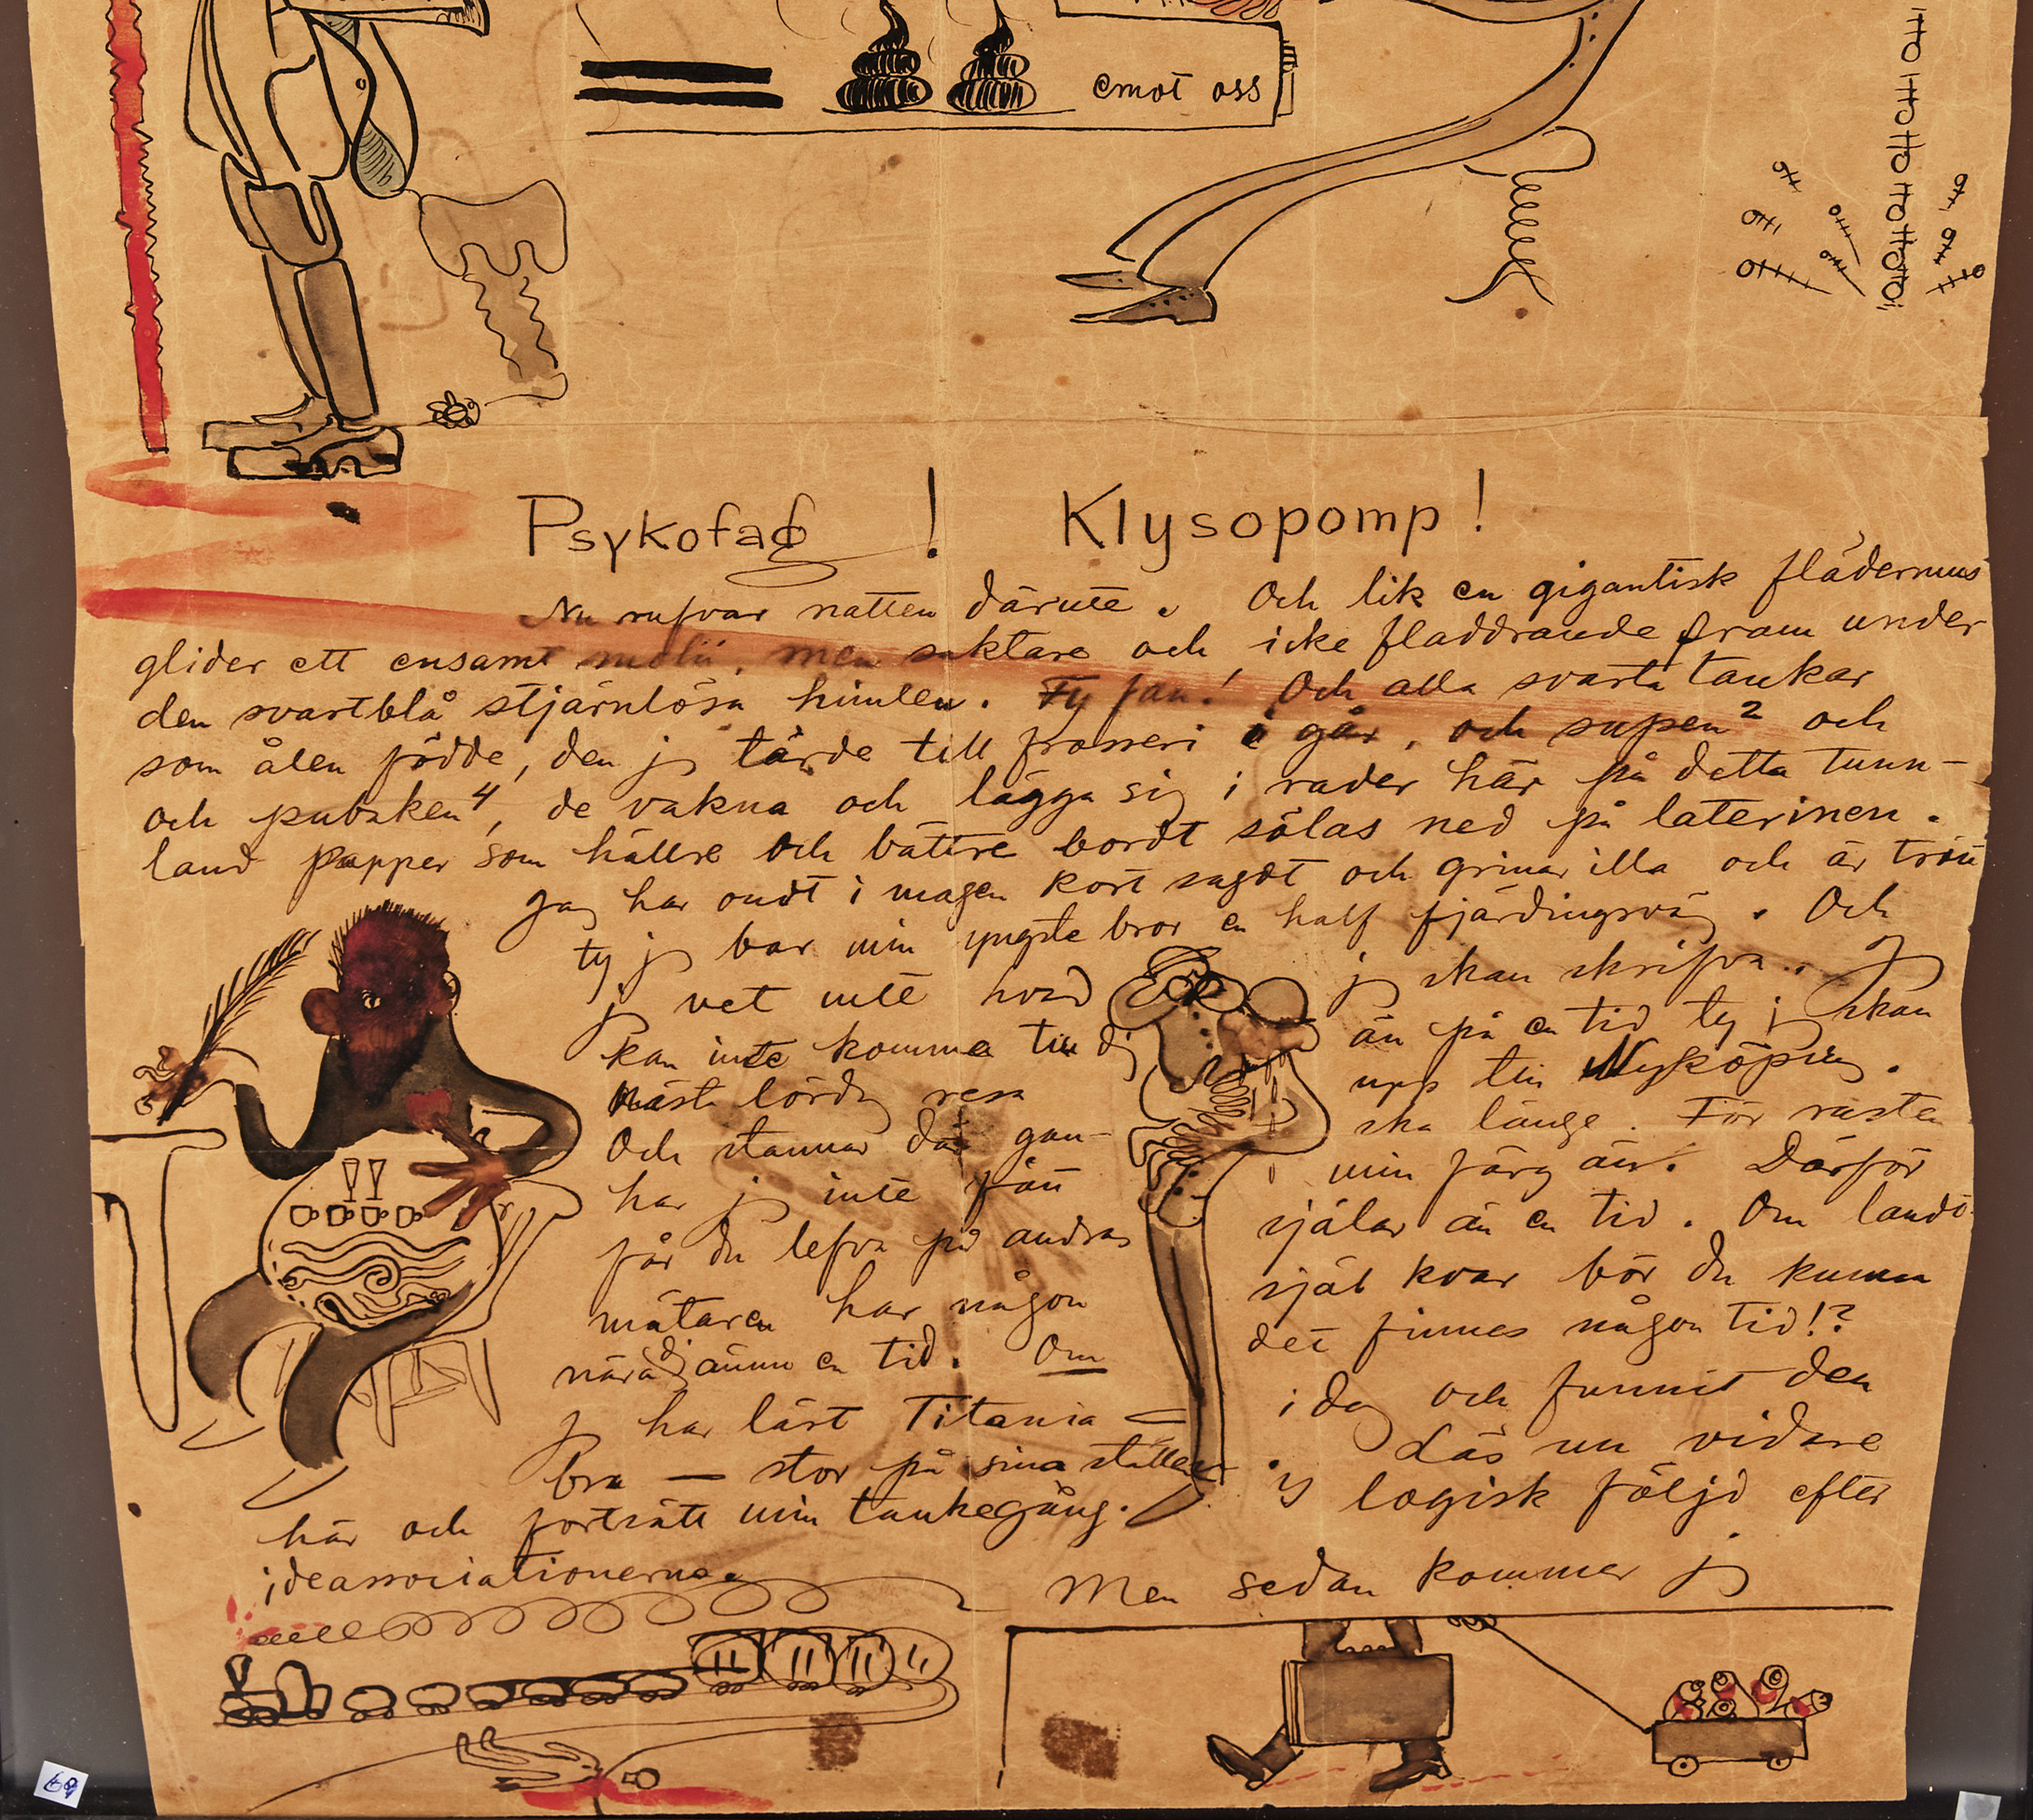 emot oss
Psykofag ! Klysopomp !
Nu rufvar natten därute. Och lik en gigantisk flädermus
glider ett ensamt moln, men saktare och icke fladdrande fram under
den svartblå stjärnlösa himlen. Fy fan! Och alla svarta tankar
som ålen födde, den jg tärde till frosseri i går, och supen² och
och pubsken⁴, de vakna och lägga sig i rader här på detta tunn-
land papper som hällre och bättre bordt sölas ned på laterinen.
Jag har ondt i magen kort sagdt och grinar illa och är trött
ty jg bar min yngste bror en half fjärdingsväg. Och
jg vet inte hvad jg skan skrifva. Jg
kan inte komma till dig än på en tid ty jg skan
nästa lördag resa upp till Nyköping.
Och stannar där gan- ska länge. För rästen
har jg inte fått min färg än. Därför
får du lefva på andras själar än en tid. Om landt-
mätaren har någon själ kvar bör du kunna
nära dig ännu en tid. Om det finnes någon tid!?
jg har läst Titania i dag och funnit den
bra — stor på sina ställen. Läs nu vidare
här och fortsätt min tankegång. i logisk följd efter
ideassociationerna.
Men sedan kommer jg
69